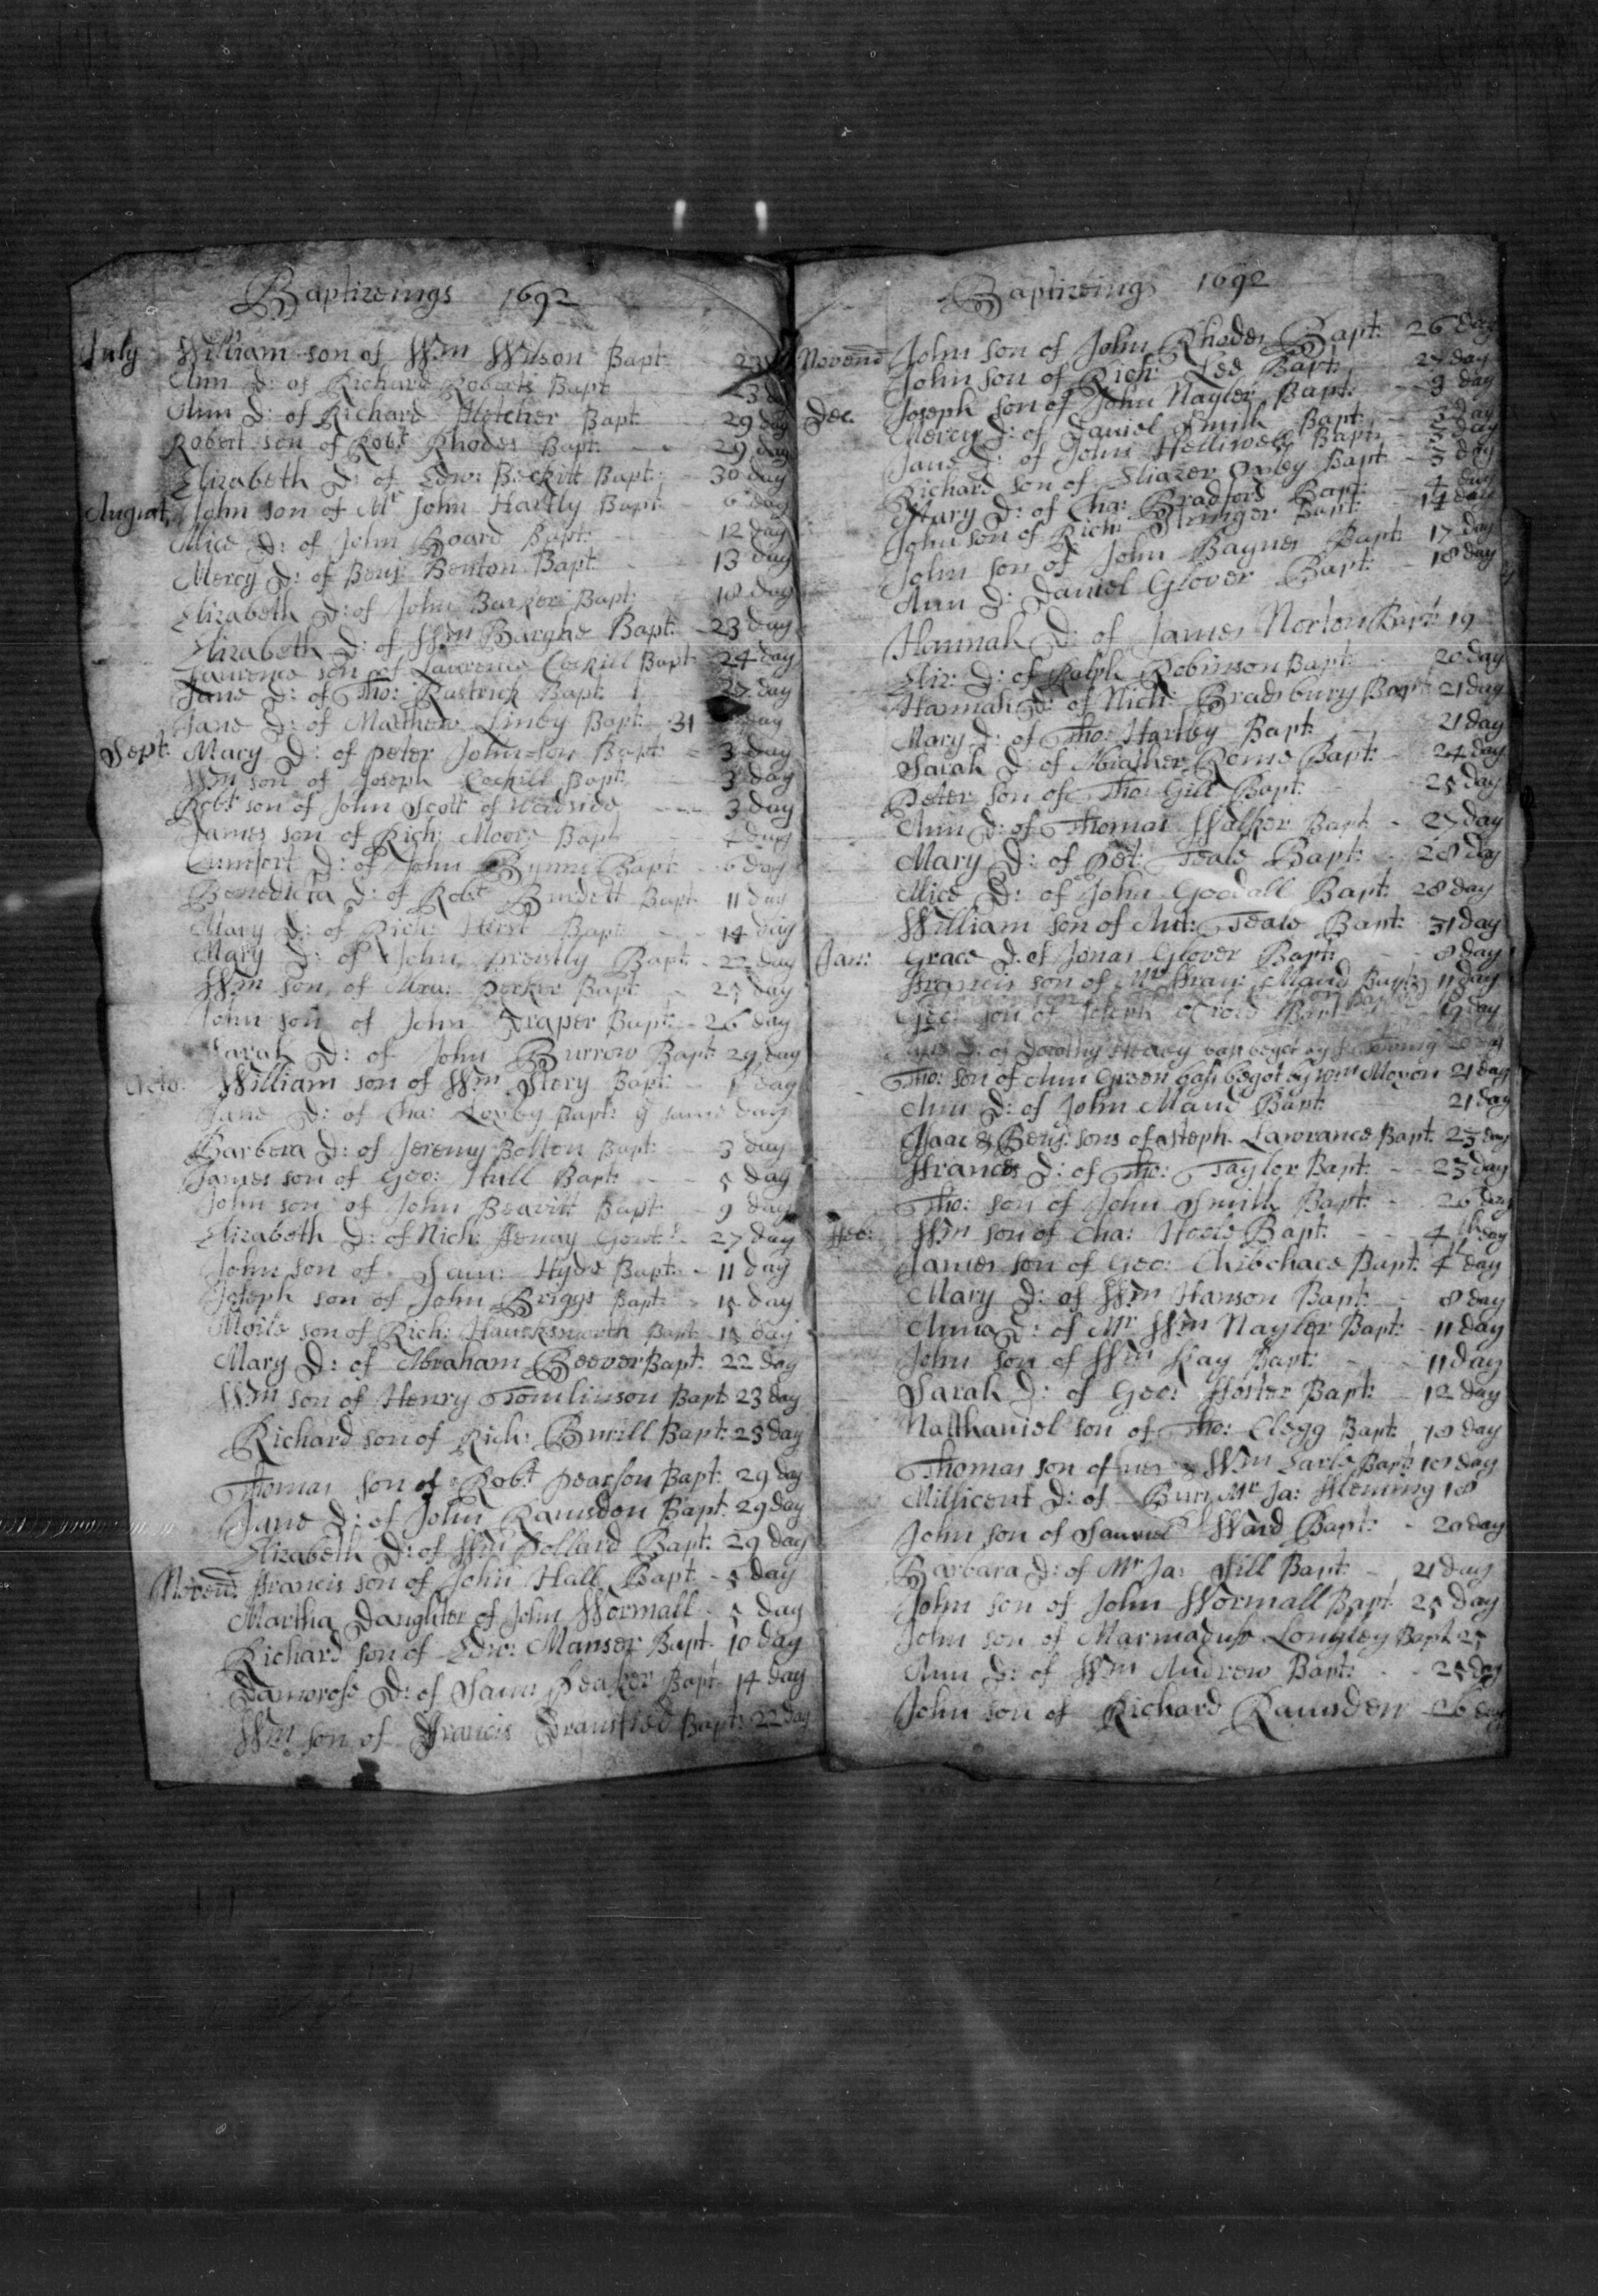 Baptizeings 1692
July William son of Wm Wilson Bapt:
Ann D: of Richard Roberts Bapt 23
Ann D: of Richard ffletcher Bapt 29 day
Robert son of Robt Rhodes Bapt: 29 day
Elizabeth D: of Edw: Beckitt Bapt: 30 day
August John son of Mr John Hartly Bapt: 6 day
Alice D: of John Board Bapt: 12 day
Mercy D: of Benj: Benton Bapt 13 day
Elizabeth D: of John Barker Bapt: 18 day
Elizabeth D: of Wm Barghe Bapt: 23 day
Lawrence son of Lawrence Cockill Bapt: 24 day
Jane D: of Tho: Rastrick Bapt: 27 day
Jane D: of Matthew Linby Bapt: 31 day
Sept: Mary D: of peter Johnson Bapt: 3 day
Wm son of Joseph Cockill Bapt: 3 day
Robt son of John Scott of 3 day
James son of Rich: Moore Bapt 4 day
D: of John Bapt 6 day
Benedicta D: of Robt Burdett Bapt 11 day
Mary D: of Rich: Hirst Bapt 14 day
Mary D: of John preistly Bapt: 22 day
Wm son of Parker Bapt 25 day
John son of John Draper Bapt: 26 day
Sarah D: of John Burrow Bapt: 29 day
Octo: William son of Wm Story Bapt: 1 day
Jane D: of Cha: Loxby Bapt: ye same day
Barbera D: of Jeremy Bolton Bapt: 3 day
James son of Geo: Hull Bapt: 5 day
John son of John Beavitt Bapt 9 day
Elizabeth D: of Nich: ffenay Gent: 27 day
John son of Sam: Hyde Bapt: 11 day
Joseph son of John Briggs Bapt: 15 day
son of Rich: Hawcksworth Bapt 15 day
Mary D: of Abraham Beever Bapt: 22 day
Wm son of Henry Tomlinson Bapt 23 day
Richard son of Rich: Burill Bapt: 23 day
Thomas son of Robt pearson Bapt: 29 day
Jane D: of John Ramsden Bapt: 29 day
Elizabeth D: of Wm Pollard Bapt: 29 day
Novem: ffrancis son of John Hall Bapt 5 day
Martha Daughter of John Wormall 5 day
Richard son of Edw: Manser Bapt 10 day
Damrose D: of Sam: Peaker Bapt 14 day
Wm son of ffrancis Bransfeld Bapt: 22 day
Baptizeings 1692
Novem John son of John Rhodes Bapt: 26 day
John son of Rich: Lee Bapt: 27 day
Dec. Joseph son of John Naylor Bapt: day
Mercy D: of Daniel Smith Bapt: 3 day
Jane D: of John Helliwell Bapt: 3 day
Richard son of Eliazer Oxley Bapt 3 day
Mary D: of Cha: Bradford Bapt: 4 day
John son of Rich: Stringer Bapt: 14 day
John son of John Baynes Bapt: 17 day
Ann D: Daniel Glover Bapt: 18 day
Hannah D: of James Norton Bapt: 19
Eliz: D: of Ralph Robinson Bapt: 20 day
Hannah D: of Nich: Bradsbury Bapt: 21 day
Mary D: of Tho: Hartley Bapt: 21 day
Sarah D: of Rome Bapt: 24 day
Peter son of Tho: Gill Bapt: 25 day
Ann D: of Thomas Walker Bapt 27 day
Mary D: of Pet: Teale Bapt: 28 day
Alice D: of John Goodall Bapt: 28 day
William son of Ant: Teale Bapt: 31 day
Jan: Grace D: of Jonas Glover Bapt: 8 day
ffrancis son of Mr ffran: Maud Bapt: 11 day
Geo: son of Joseph Bapt 19 day
D: of Dorothy bast begot by
Tho: son of Ann Green bast begot by Wm Moxon 21 day
Ann D: of John Maud Bapt 21 day
Isaac & Benj: sons of Steph: Lawrance Bapt: 23 day
ffrances D: of Tho: Taylor Bapt: 23 day
Tho: son of John Smith Bapt: 26 day
ffeb: Wm son of Cha: Hoole Bapt: 4th day
James son of Geo: Bapt: 4th day
Mary D: of Wm Hanson Bapt: 8 day
Anna D: of Mr Wm Naylor Bapt: 11 day
John son of Wm Kay Bapt: 11 day
Sarah D: of Geo: ffoster Bapt: 12 day
Natthaniel son of Tho: Clegg Bapt: 18 day
Thomas son of Wm Earle Bapt: 18 day
Millicent D: of Mr Ja: ffleming 18
John son of Samuel Ward Bapt: 20 day
Barbara D: of Mr Ja: Sill Bapt: 21 day
John son of John Wormall Bapt: 25 day
John son of Marmaduke Longley Bapt 25
Ann D: of Wm Andrew Bapt: 25 day
John son of Richard Ramsden 26 day